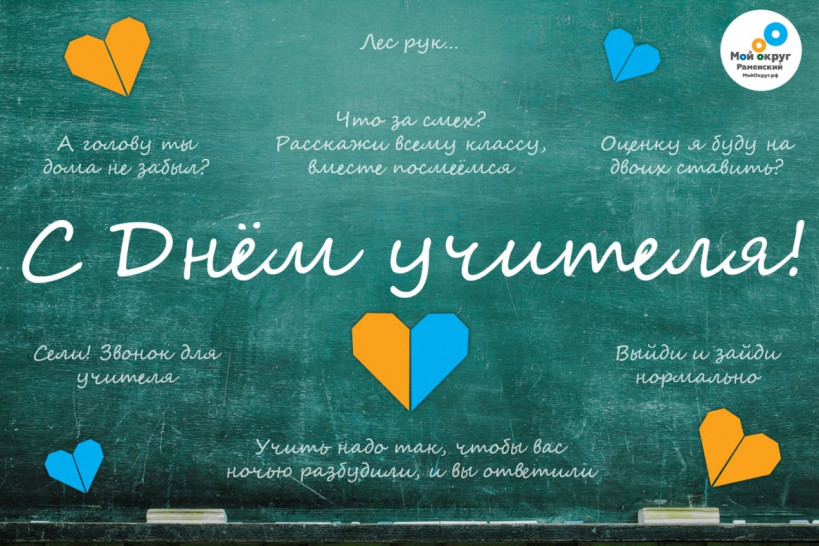 Лес рук...
Мой округ
Раменский
МойОкруг.рф
Что за смех?
Расскажи всему классу,
вместе посмеёмся
А голову ты
дома не забыл?
Оценку я буду на
двоих ставить?
С Днём учителя!
Сели! Звонок для
учителя
Выйди и зайди
нормально
Учить надо так, чтобы вас
ночью разбудили, и вы ответили